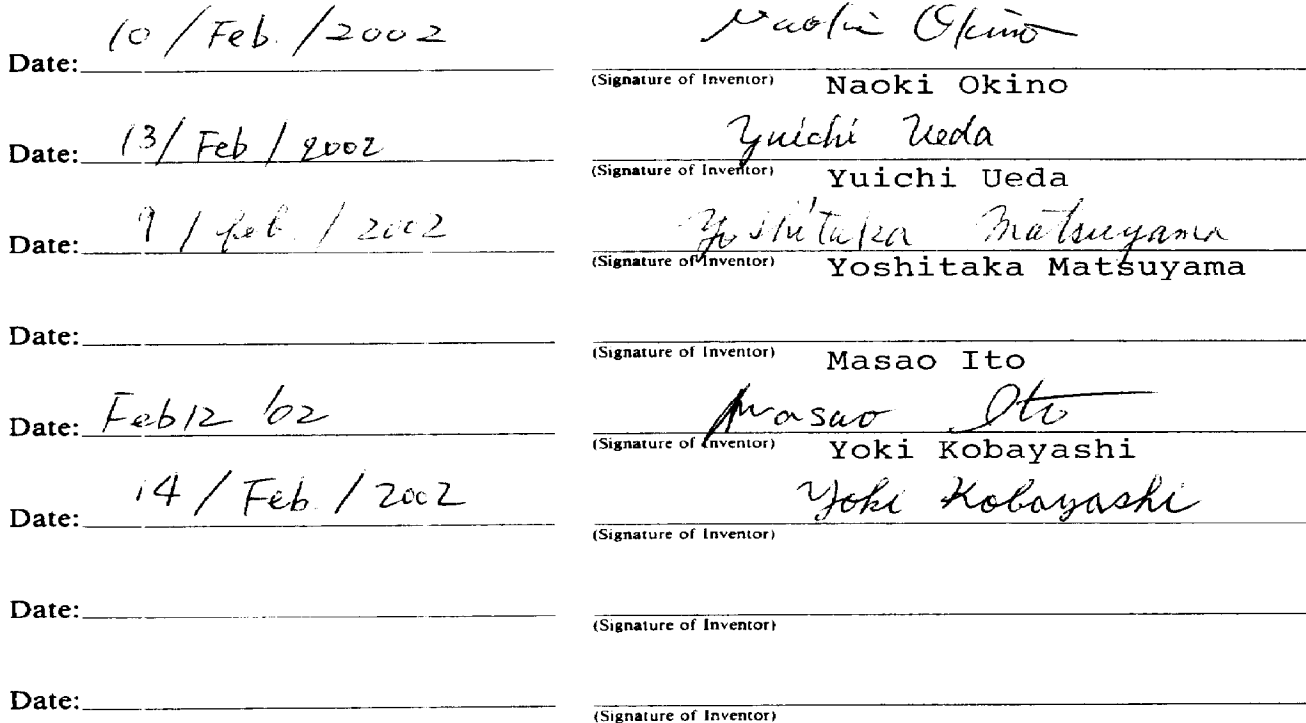 Date: 10 / Feb. / 2002 Naoki Okino
(Signature of Inventor) Naoki Okino
Date: 13 / Feb / 2002 Yuichi Ueda
(Signature of Inventor) Yuichi Ueda
Date: 9 / Feb. / 2002 Yoshitaka Matsuyama
(Signature of Inventor) Yoshitaka Matsuyama
Date:
(Signature of Inventor) Masao Ito
Date: Feb 12 '02 Masao Ito
(Signature of Inventor) Yoki Kobayashi
Date: 14 / Feb. / 2002 Yoki Kobayashi
(Signature of Inventor)
Date:
(Signature of Inventor)
Date:
(Signature of Inventor)